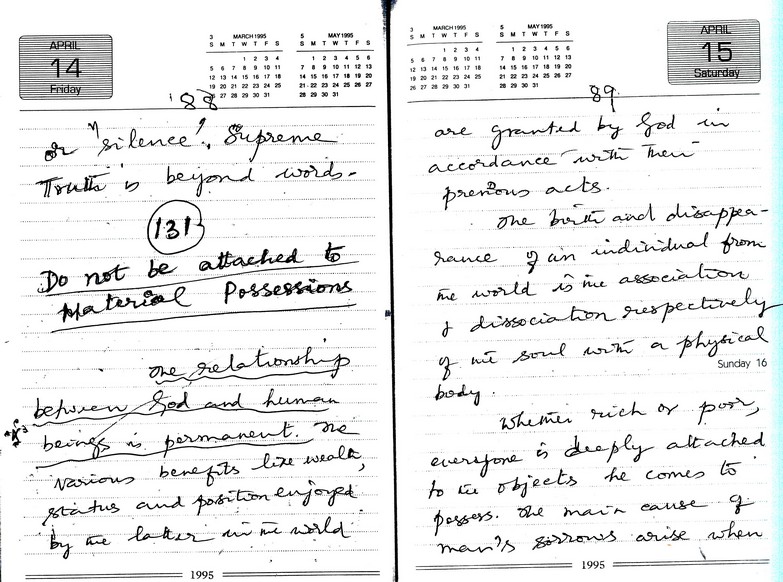 APRIL
14
Friday
3 MARCH 1995
S M T W T F S
1 2 3 4
5 6 7 8 9 10 11
12 13 14 15 16 17 18
19 20 21 22 23 24 25
26 27 28 29 30 31
5 MAY 1995
S M T W T F S
1 2 3 4 5 6
7 8 9 10 11 12 13
14 15 16 17 18 19 20
21 22 23 24 25 26 27
28 29 30 31
88
or "silence". Supreme
Truth is beyond words.
131
Do not be attached to
Material Possessions
The relationship
between God and human
beings is permanent. The
various benefits like wealth,
status and position enjoyed
by the latter in the world
1995
3 MARCH 1995
S M T W T F S
1 2 3 4
5 6 7 8 9 10 11
12 13 14 15 16 17 18
19 20 21 22 23 24 25
26 27 28 29 30 31
5 MAY 1995
S M T W T F S
1 2 3 4 5 6
7 8 9 10 11 12 13
14 15 16 17 18 19 20
21 22 23 24 25 26 27
28 29 30 31
APRIL
15
Saturday
89
are granted by God in
accordance with their
previous acts.
The birth and disappea-
rance of an individual from
the world is the association
& dissociation respectively
of the soul with a physical
Sunday 16
body.
Whether rich or poor,
everyone is deeply attached
to the objects he comes to
possess. The main cause of
man's sorrows arise when
1995